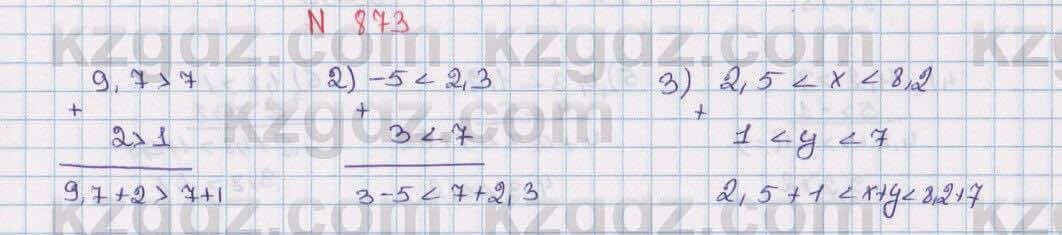 N 873
9,7>7
+
2>1
9,7+2>7+1
2) -5<2,3
+
3<7
3-5<7+2,3
3) 2,5<x<8,2
+
1<y<7
2,5+1<x+y<8,2+7
kzgdz.com